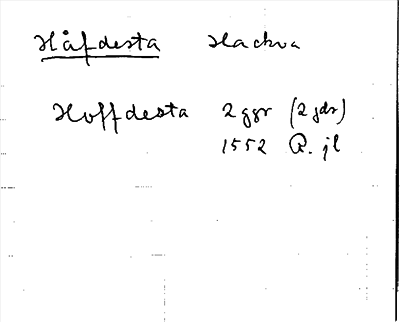 Håfdesta Hackva
Hoffdesta 2 ggr (2 gdr)
1552 R. jl